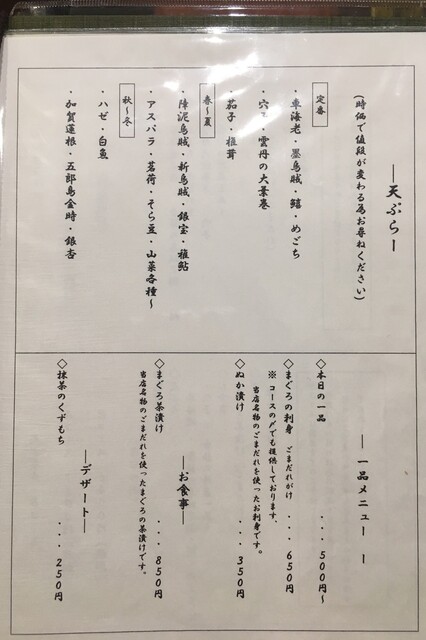 ―天ぷら―
(時価で値段が変わる為お尋ねください)
定番
・車海老・墨烏賊・鱚・めごち
・穴子・雲丹の大葉巻
・茄子・椎茸
春～夏
・障泥烏賊・新烏賊・銀宝・稚鮎
・アスパラ・茗荷・そら豆・山菜各種～
秋～冬
・ハゼ・白魚
・加賀蓮根・五郎島金時・銀杏
―一品メニュー―
◇本日の一品 ・・・500円～
◇まぐろの刺身 ごまだれがけ ・・・650円
※コースの〆でも提供しております。
当店名物のごまだれを使ったお刺身です。
◇ぬか漬け ・・・350円
―お食事―
◇まぐろ茶漬け ・・・850円
当店名物のごまだれを使ったまぐろの茶漬けです。
―デザート―
◇抹茶のくずもち ・・・250円